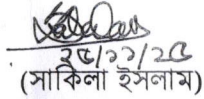 ২৫/১১/২৫
(সাকিলা ইসলাম)